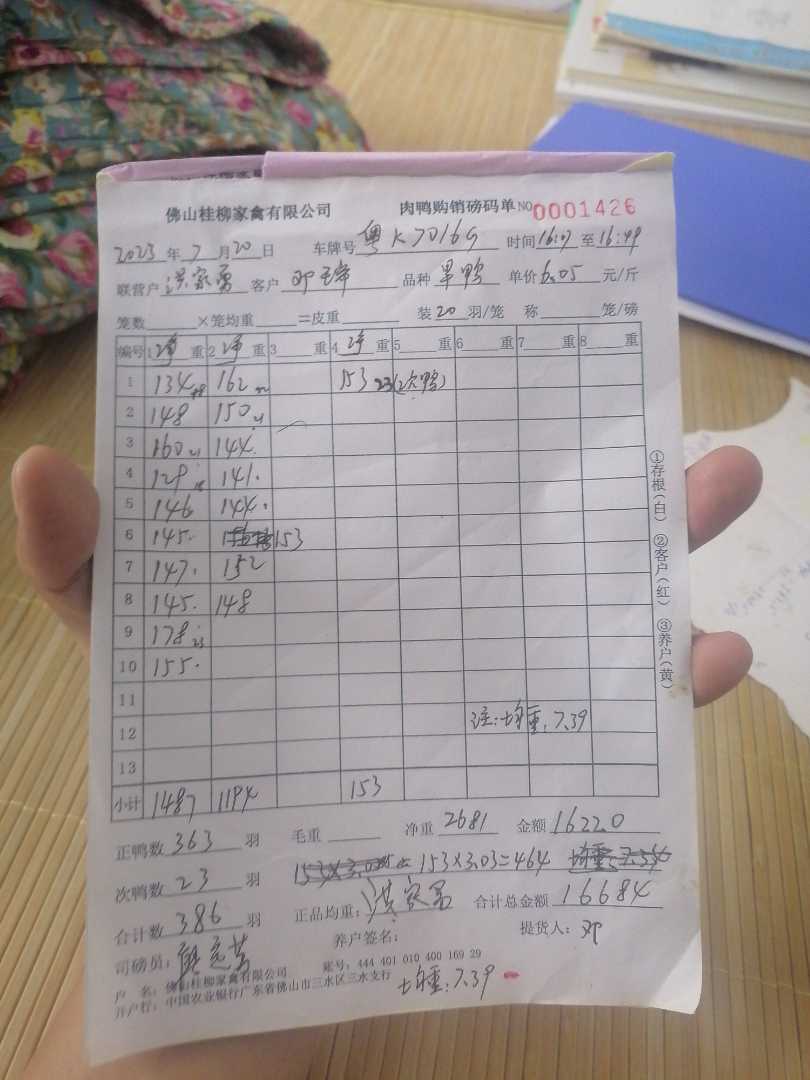 佛山桂柳家禽有限公司 肉鸭购销磅码单 NO 0001426
2023 年 7 月 20 日 车牌号 粤K7016G 时间 16:07 至 16:49
联营户 洪家勇 客户 邓 品种 旱鸭 单价 6.05 元/斤
笼数 ×笼均重 =皮重 装 20 羽/笼 称 笼/磅
编号 1 净 重 2 净 重 3 重 4 净 重 5 重 6 重 7 重 8 重
1 134 162 153 23(次鸭)
2 148 150
3 160 144
4 129 141
5 146 144
6 145 153
7 147 152
8 145 148
9 178 23
10 155
11
12 注:均重:7.39
13
小计 1487 1194 153
正鸭数 363 羽 毛重 净重 2681 金额 16220
次鸭数 23 羽 153×3.03=464
合计数 386 羽 正品均重: 洪家勇 合计总金额 16684
司磅员: 养户签名: 提货人: 邓
户 名: 佛山桂柳家禽有限公司 账号: 444 401 010 400 169 29
开户行: 中国农业银行广东省佛山市三水区三水支行 均重:7.39
①存根(白) ②客户(红) ③养户(黄)